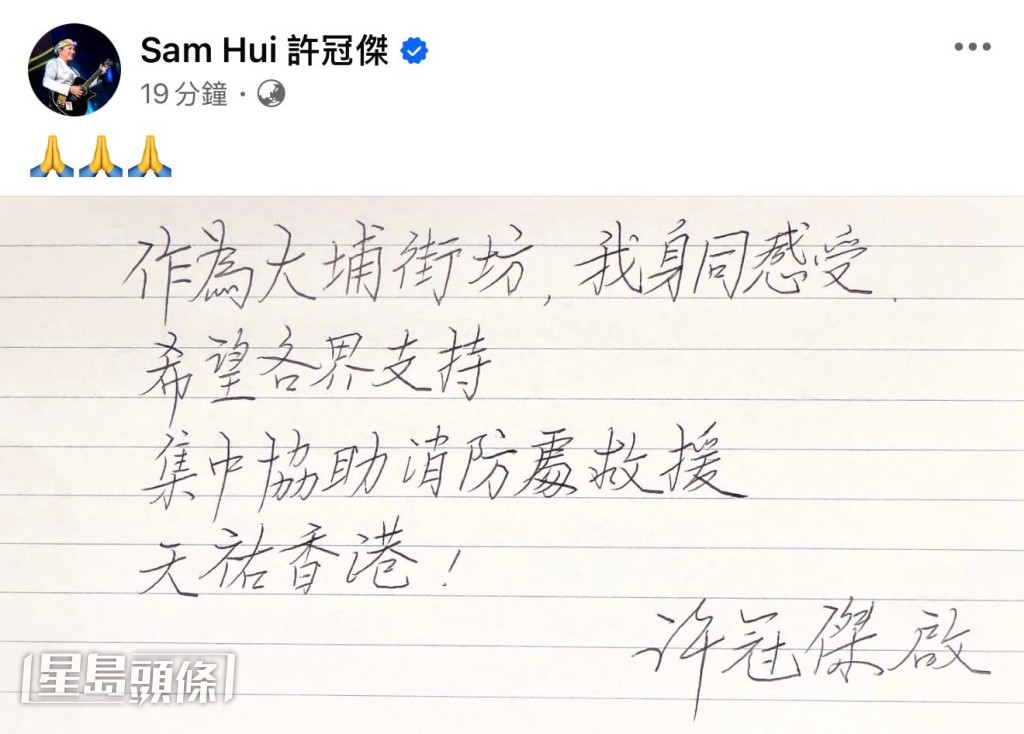 Sam Hui 許冠傑
19 分鐘 ·
🙏🙏🙏
作為大埔街坊, 我身同感受.
希望各界支持
集中協助消防處救援
天祐香港!
许冠傑 啟
星島頭條